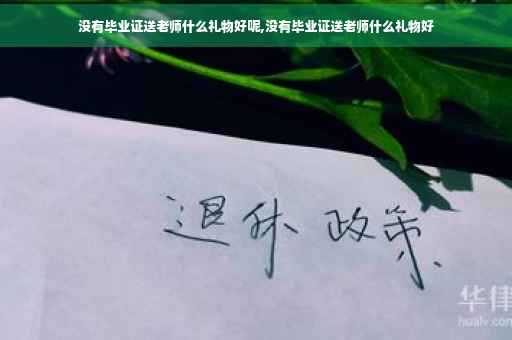 没有毕业证送老师什么礼物好呢,没有毕业证送老师什么礼物好
退休 政策
华律
hualv.com